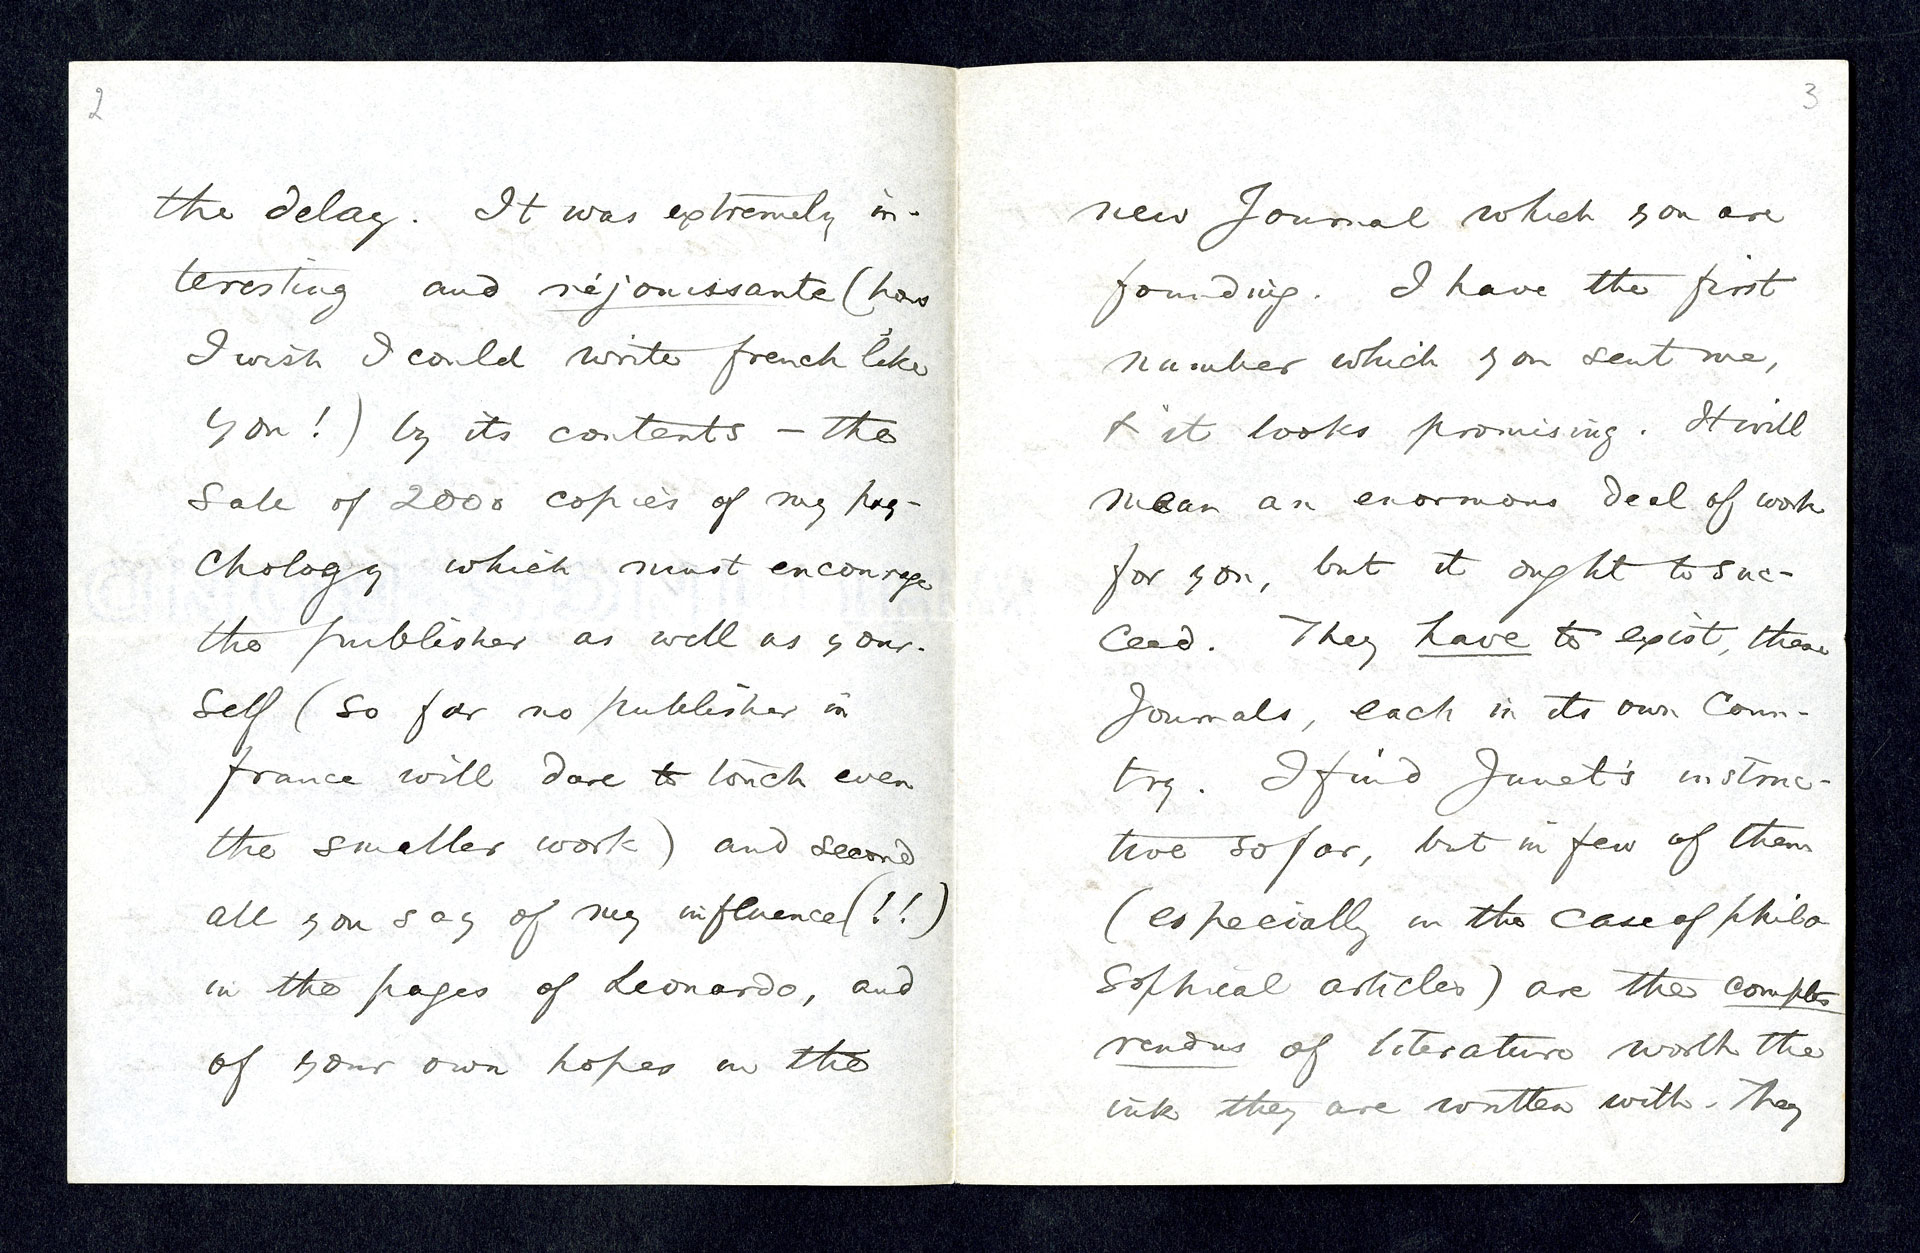 2
the delay. It was extremely in-
teresting and réjouissante (how
I wish I could write french like
you!) by its contents – the
sale of 2000 copies of my psy-
chology which must encourage
the publisher as well as your-
self (so far no publisher in
france will dare to touch even
the smaller work) and second
all you say of my influence (!!)
in the pages of Leonardo, and
of your own hopes in the
3
new Journal which you are
founding. I have the first
number which you sent me,
& it looks promising. It will
mean an enormous deal of work
for you, but it ought to suc-
ceed. They have to exist, these
Journals, each in its own Coun-
try. I find Janet's instruc-
tive so far, but in few of them
(especially in the case of philo
sophical articles) are the comptes
rendus of literature worth the
ink they are written with. They